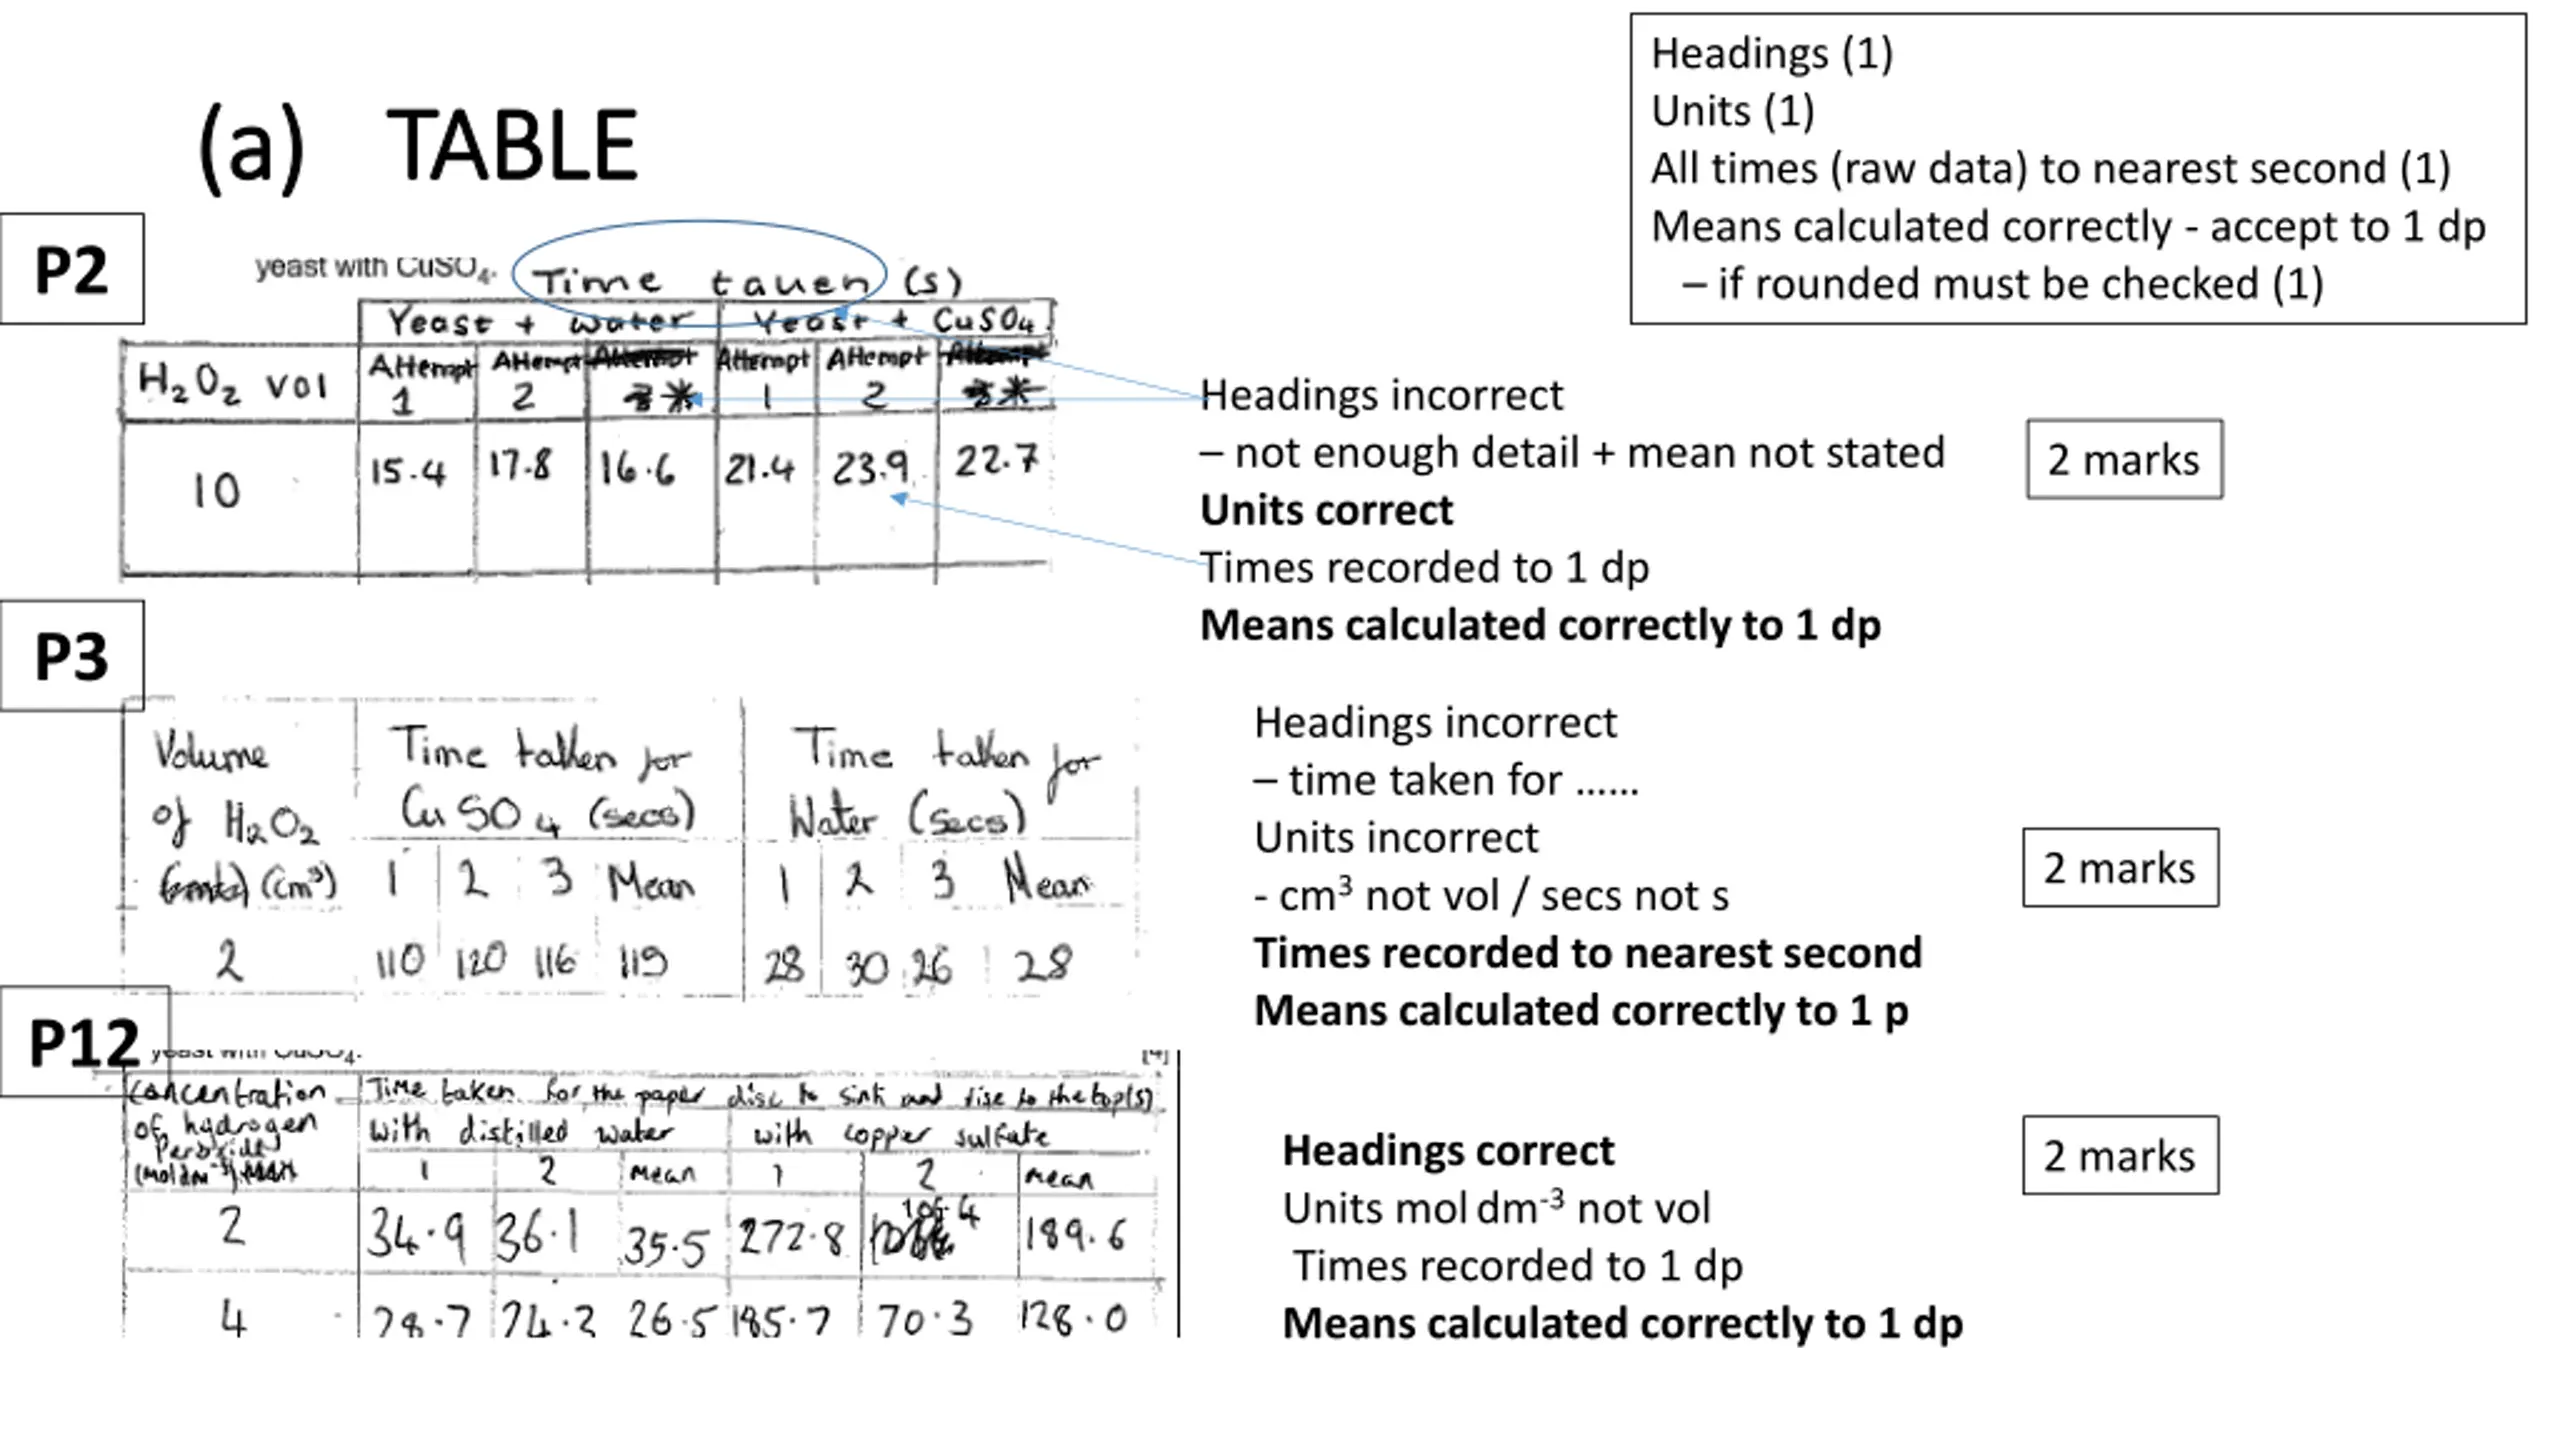 Headings (1)
Units (1)
All times (raw data) to nearest second (1)
Means calculated correctly - accept to 1 dp
– if rounded must be checked (1)
(a) TABLE
P2
yeast with CuSO4.
Time taken (s)
Yeast + water Yeast + CuSO4
H2O2 vol Attempt 1 Attempt 2 Attempt 3* Attempt 1 Attempt 2 Attempt 3*
10 15.4 17.8 16.6 21.4 23.9 22.7
Headings incorrect
– not enough detail + mean not stated
Units correct
Times recorded to 1 dp
Means calculated correctly to 1 dp
2 marks
P3
Volume of H2O2 (cm³) Time taken for CuSO4 (secs) Time taken for Water (secs)
1 2 3 Mean 1 2 3 Mean
2 110 120 116 119 28 30 26 28
Headings incorrect
– time taken for ......
Units incorrect
- cm³ not vol / secs not s
Times recorded to nearest second
Means calculated correctly to 1 p
2 marks
P12
yeast with CuSO4.
[4]
Concentration of hydrogen Peroxide (mol dm⁻³) Time taken for the paper disc to sink and rise to the top(s)
with distilled water with copper sulfate
1 2 Mean 1 2 mean
2 34.9 36.1 35.5 272.8 106.4 189.6
4 28.7 24.2 26.5 185.7 70.3 128.0
Headings correct
Units mol dm⁻³ not vol
Times recorded to 1 dp
Means calculated correctly to 1 dp
2 marks